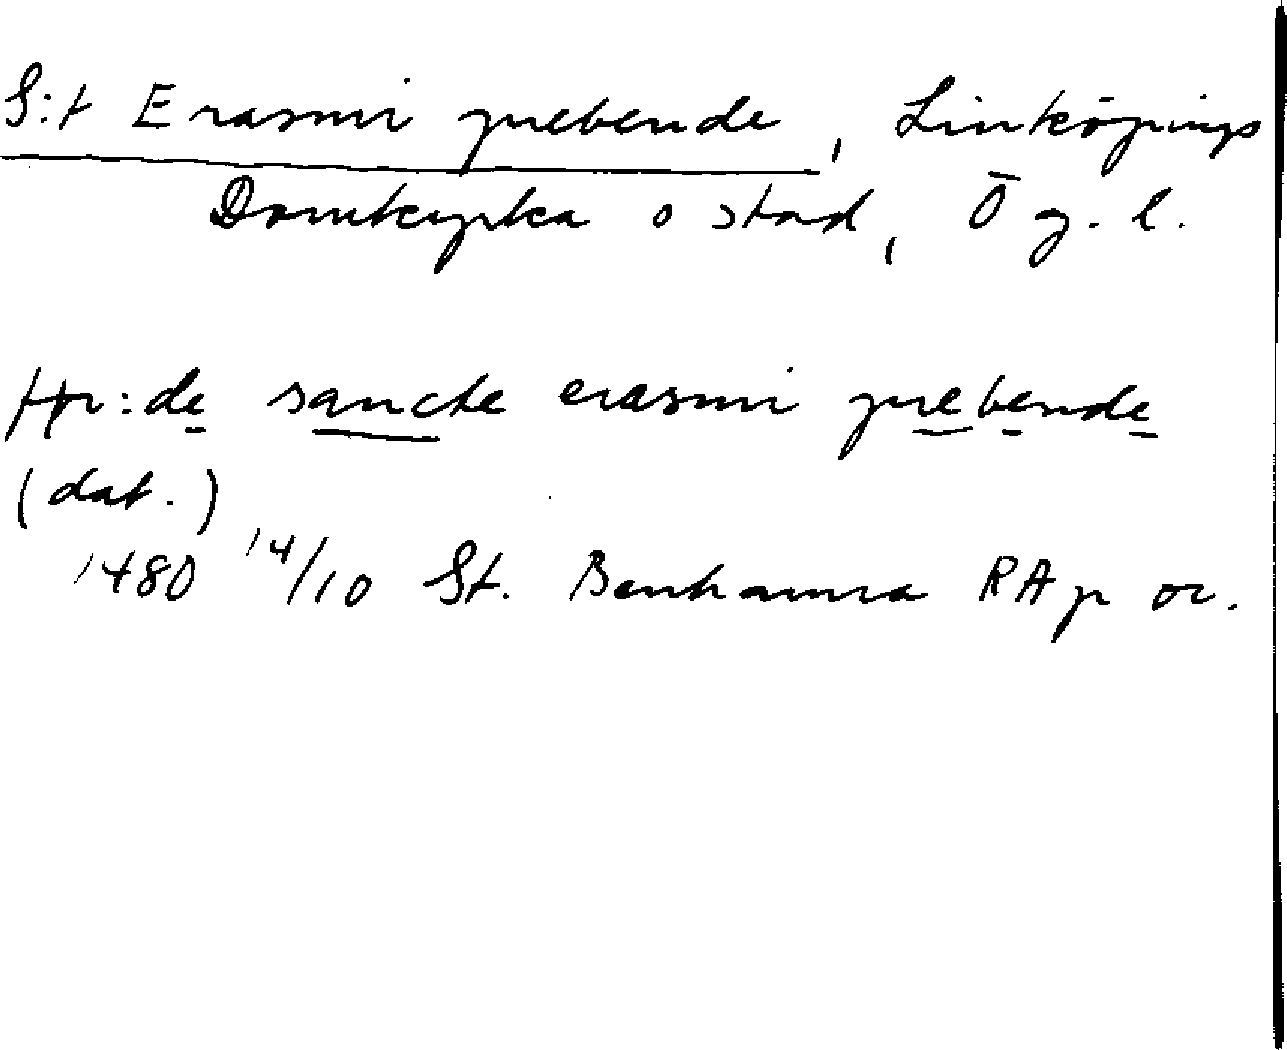 S:t Erasmi prebende, Linköpings
Domkyrka o stad, Ög. l.
Hpr: de sancte erasmi prebende
(dat.)
1480 14/10 St. Benhamra RAp or.